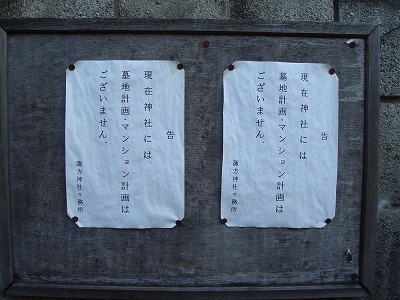 告
現在神社には、
墓地計画・マンション計画は
ございません。
諏方神社々務所
告
現在神社には、
墓地計画・マンション計画は
ございません。
諏方神社々務所